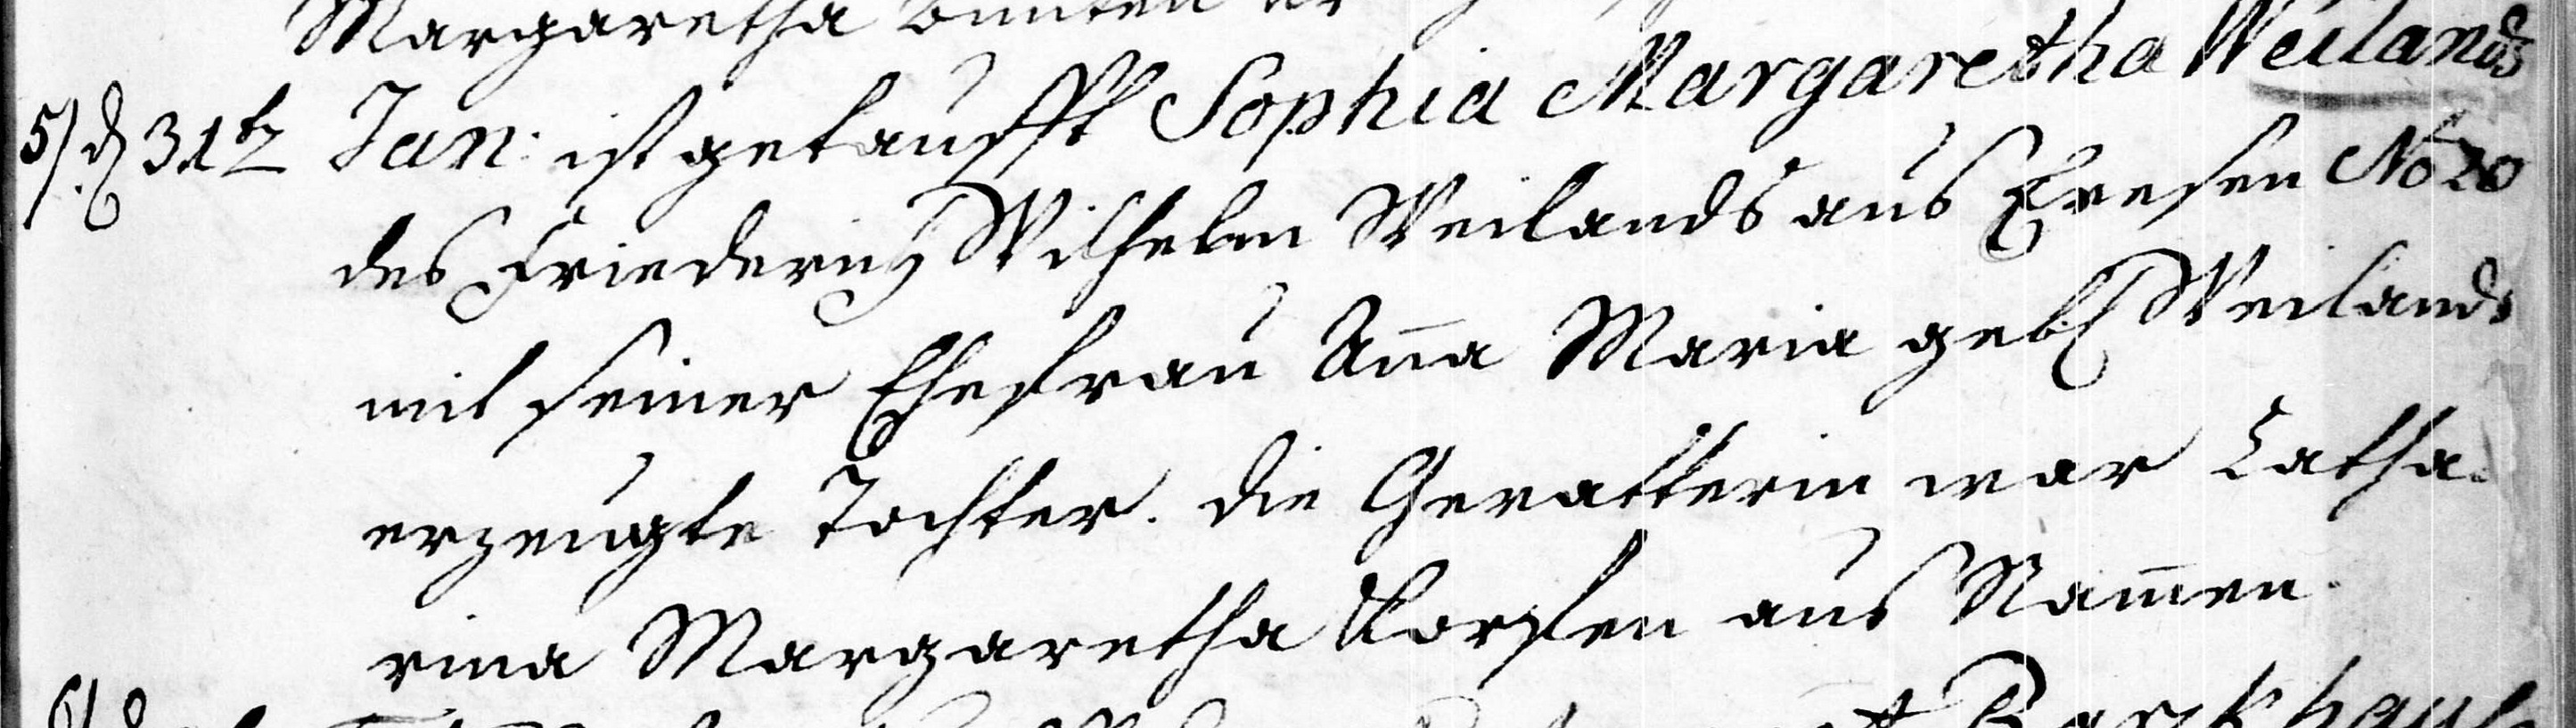 Margaretha
5) d 31t Jan: ist getaufft Sophia Margaretha Weilands
des Friederich Wilhelm Weilands aus Fresen No 20
mit seiner Ehefrau Aña Maria geb Weilands
erzeugte Tochter. die Gevatterin war Catha-
rina Margaretha aus Nam̄en
6)